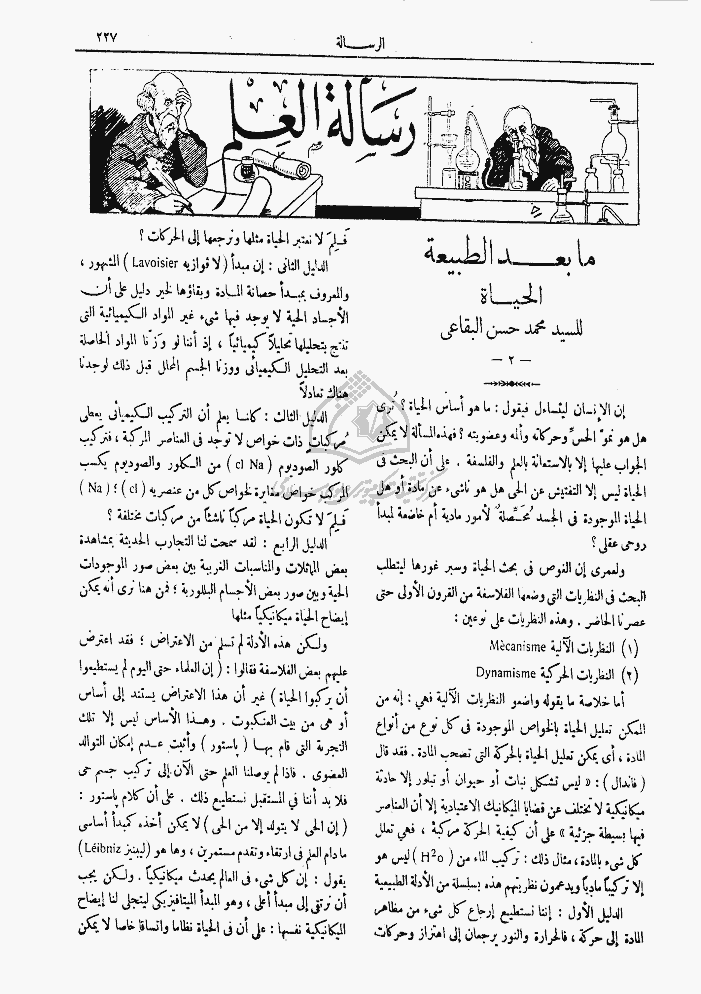 ٢٢٧
الرسالة
رسالة العلم
ما بعد الطبيعة
الحياة
للسيد محمد حسن البقاعى
— ٢ —
إن الإنسان ليتساءل فيقول : ما هو أساس الحياة ؟ تُرى
هل هو نموّ الحسِّ وحركاته وألمه وعضويته ؟ فهذه المسألة لا يمكن
الجواب عليها إلا بالاستعانة بالعلم والفلسفة . على أن البحث فى
الحياة ليس إلا التفتيش عن الحى هل هو ناشىء عن مادة أو هل
الحياة الموجودة فى الجسد مُحَصِّلةٌ لأمور مادية أم خاضعة لمبدأ
روحى عقلى ؟
ولعمرى إن الغوص فى بحث الحياة وسبر غورها ليتطلب
البحث فى النظريات التى وضعها الفلاسفة من القرون الأولى حتى
عصرنا الحاضر . وهذه النظريات على نوعين :
(١) النظريات الآلية Mècanisme
(٢) النظريات الحركية Dynamisme
أما خلاصة ما يقوله واضعو النظريات الآلية فهى : إنه من
الممكن تعليل الحياة بالخواص الموجودة فى كل نوع من أنواع
المادة ، أى يمكن تعليل الحياة بالحركة التى تصحب المادة . فقد قال
( فاندال ) : « ليس تشكل نبات أو حيوان أو تبلور إلا حادثة
ميكانيكية لا تختلف عن قضايا الميكانيك الاعتيادية إلا أن العناصر
فيها بسيطة جزئية » على أن كيفية الحركة مركبة ، فهى تعلل
كل شىء بالمادة ، مثال ذلك : تركيب الماء من ( H²o ) ليس هو
إلا تركيباً مادياً ويدعمون نظريتهم هذه بسلسلة من الأدلة الطبيعية
الدليل الأول : إننا نستطيع إرجاع كل شىء من مظاهر
المادة إلى حركة ، فالحرارة والنور يرجعان إلى اهتزاز وحركات
فَـلِـمَ لا نعتبر الحياة مثلها ونرجعها إلى الحركات ؟
الدليل الثانى : إن مبدأ ( لا ڤوازيه Lavoisier ) المشهور ،
والمعروف بمبدأ حصانة المادة وبقاؤها لخير دليل على أن
الأجساد الحية لا يوجد فيها شىء غير المواد الكيميائية التى
تنتج بتحليلها تحليلاً كيميائياً ، إذ أننا لو وزنّا المواد الحاصلة
بعد التحليل الكيميائى ووزنا الجسم المحلل قبل ذلك لوجدنا
هناك تعادلاً
الدليل الثالث : كلنا يعلم أن التركيب الكيميائى يعطى
مُركبات ذات خواص لا توجد فى العناصر المركبة ، فتركيب
كلور الصوديوم ( cl Na ) من الكلور والصوديوم يكسب
المركب خواص مغايرة لخواص كل من عنصريه ( cl ) ؛ ( Na )
فَـلِـمَ لا تكون الحياة مركباً ناشئاً من مركبات مختلفة ؟
الدليل الرابع : لقد سمحت لنا التجارب الحديثة بمشاهدة
بعض المماثلات والمناسبات الغريبة بين بعض صور الموجودات
الحية وبين صور بعض الأجسام البللورية ؛ فمن هنا نرى أنه يمكن
إيضاح الحياة ميكانيكياً مثلها
ولكن هذه الأدلة لم تسلم من الاعتراض ؛ فقد اعترض
عليهم بعض الفلاسفة فقالوا : ( إن العلماء حتى اليوم لم يستطيعوا
أن يركبوا الحياة ) غير أن هذا الاعتراض يستند إلى أساس
أو هى من بيت العنكبوت . وهذا الأساس ليس إلا تلك
التجربة التى قام بها ( باستور ) وأثبت عدم إمكان التوالد
العضوى . فاذا لم يوصلنا العلم حتى الآن إلى تركيب جسم حى
فلا بد أننا فى المستقبل نستطيع ذلك . على أن كلام باستور :
( إن الحى لا يتولد إلا من الحى ) لا يمكن أخذه كمبدأ أساسى
ما دام العلم فى ارتقاء وتقدم مستمرين ، وها هو (ليبنيز Léibniz)
يقول : إن كل شىء فى العالم يحدث ميكانيكياً . ولكن يجب
أن نرتقى إلى مبدأ أعلى ، وهو المبدأ الميتافيزيكى ليتجلى لنا إيضاح
الميكانيكية نفسها : على أن فى الحياة نظاما واتساقا خاصا لا يمكن